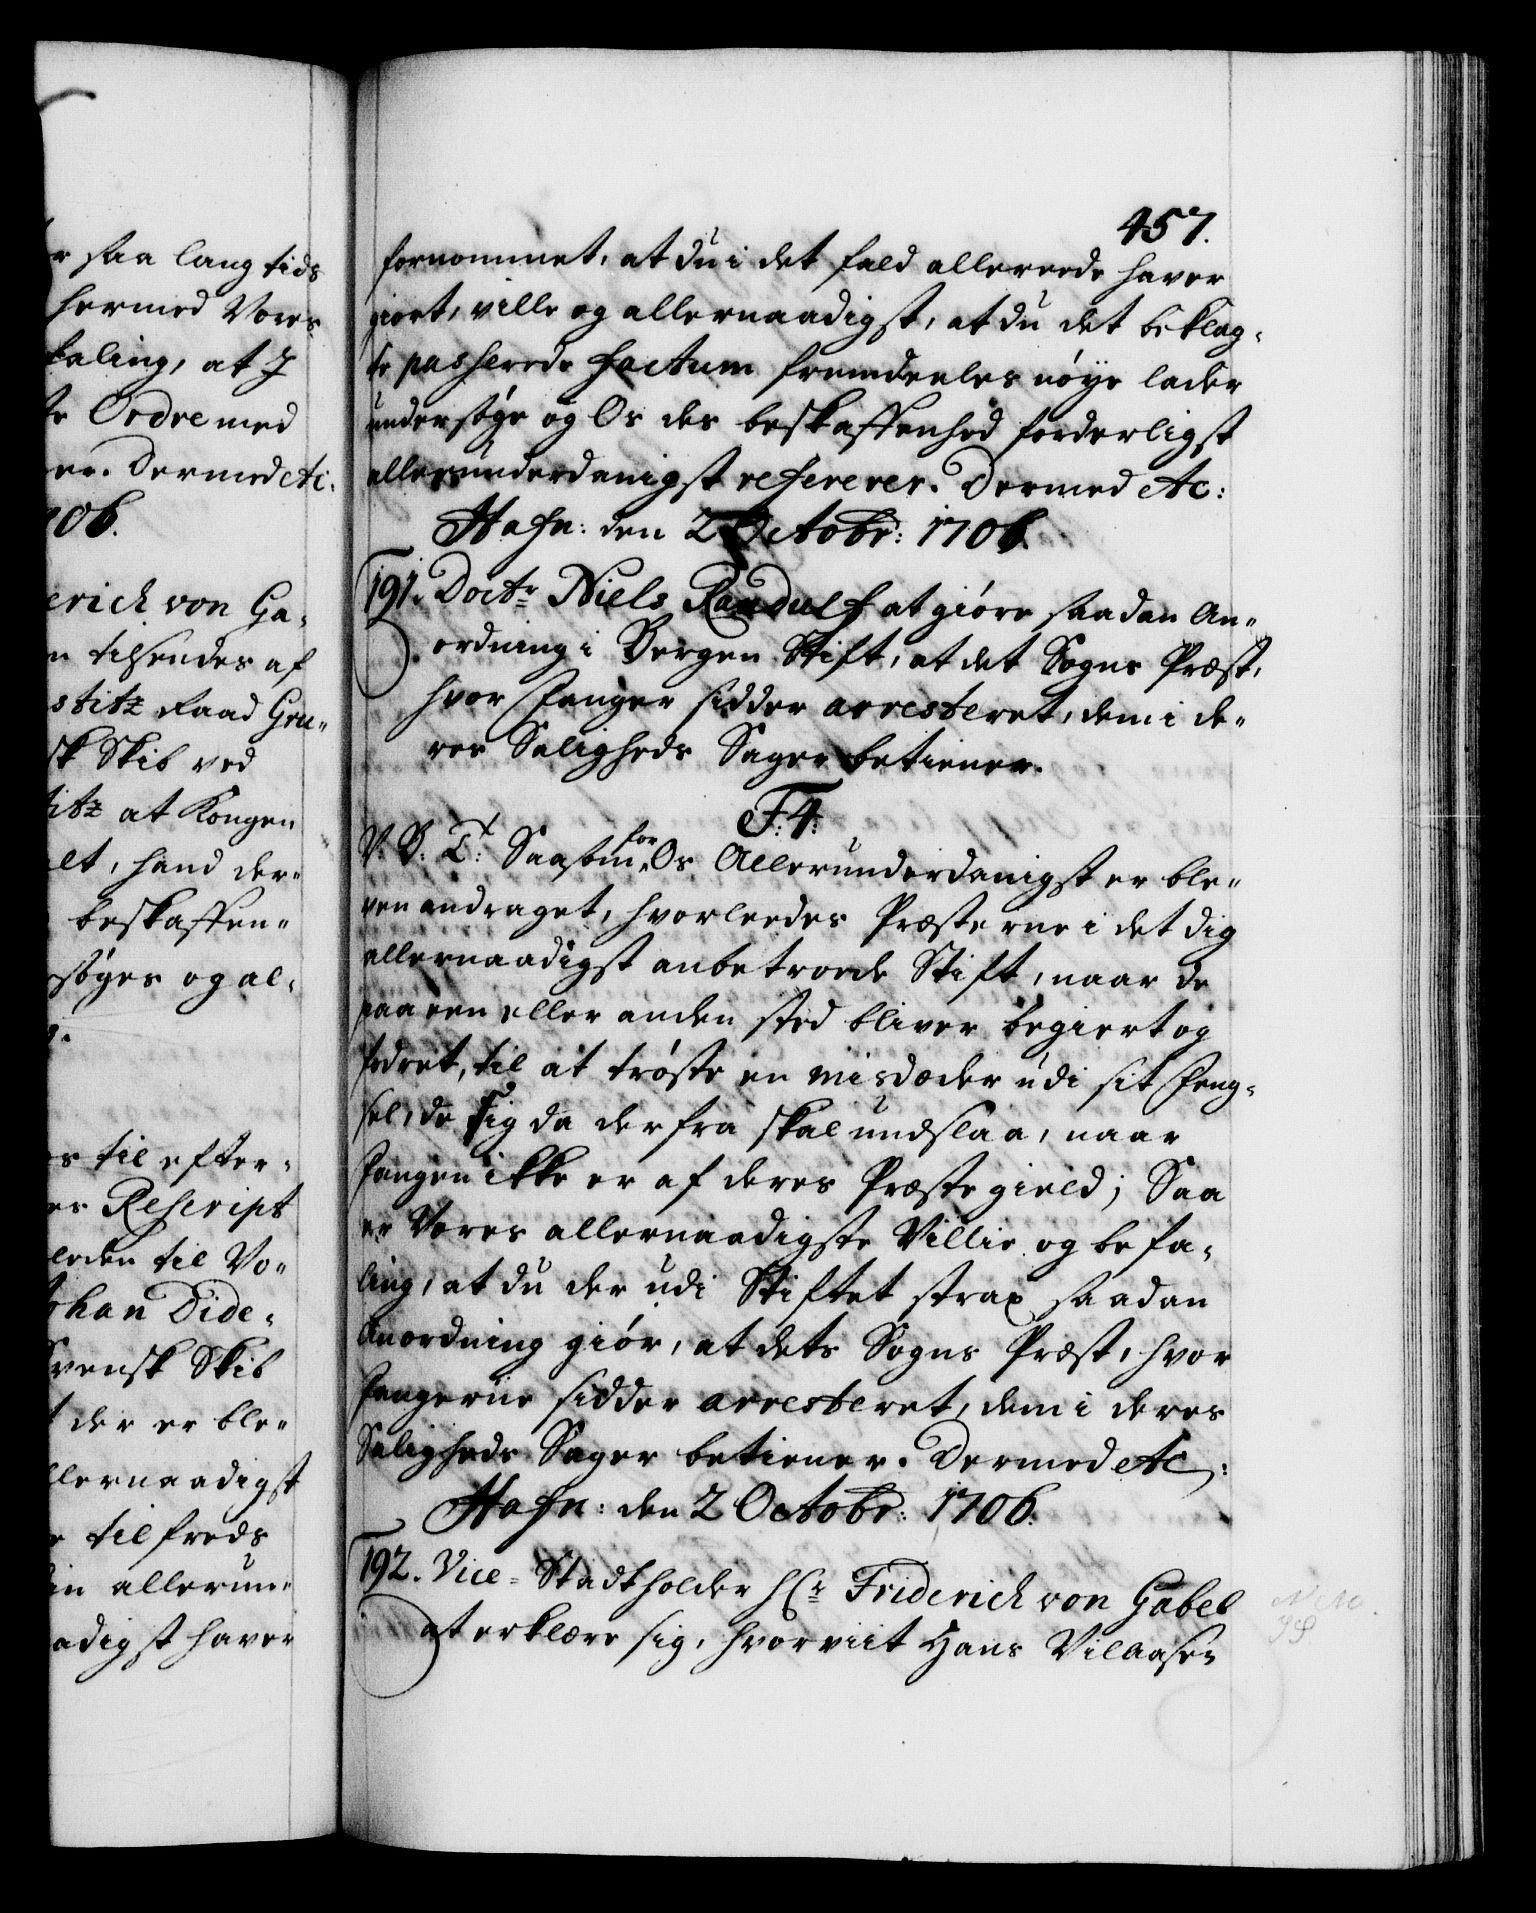 r saa lang tids
hermed Vores
kaling, at I
te Ordre med
er. Dermed etc:
706.
erich von Ga-
n tilsendes af
stitz Raad Gru-
sk Skib ved
titz at Kongen
elt, hand der-
beskaffen-
søges og al-
os til efter-
es Rescript
leden til Vo-
Johan Dide-
Svensk Skib
t der er ble-
llernaadigst
e tilfreds
in allerun-
adigst haver
457.
fornommet, at du i det fald allereede haver
giort, ville og allernaadigst, at du det beklag-
te passerede factum fremdeeles nøye lader
undersøge og Os des beskaffenhed forderligst
allerunderdanigst refererer. Dermed etc:
Hafn: den 2 Octobr: 1706.
191. Doctr Niels Randulf at giøre saadan An-
ordning i Bergen Stift, at det Sogns Præst,
hvor Fanger sidder arresteret, dem i de-
res Saligheds Sager betiener.
F: 4:
V. G: T: Saasom for Os Allerunderdanigst er ble-
ven andraget, hvorleedes Præsterne i det dig
allernaadigst anbetroede Stift, naar de
paa een eller anden sted bliver begiert og
fodret, til at trøste en misdæder udi sit Feng-
sel, de sig da derfra skal undslaa, naar
Fangen ikke er af deres Præstegield; Saa
er Vores allernaadigste Villie og befa-
ling, at du der udi Stiftet strax saadan
Anordning giør, at dets Sogns Præst, hvor
Fangerne sidder arresteret, dem i deres
Saligheds Sager betiener. Dermed etc:
Hafn: den 2 Octobr: 1706.
192. Vice-Stadtholder Hr Friderich von Gabel
at erklære sig, hvorviit Hans Vilaasen